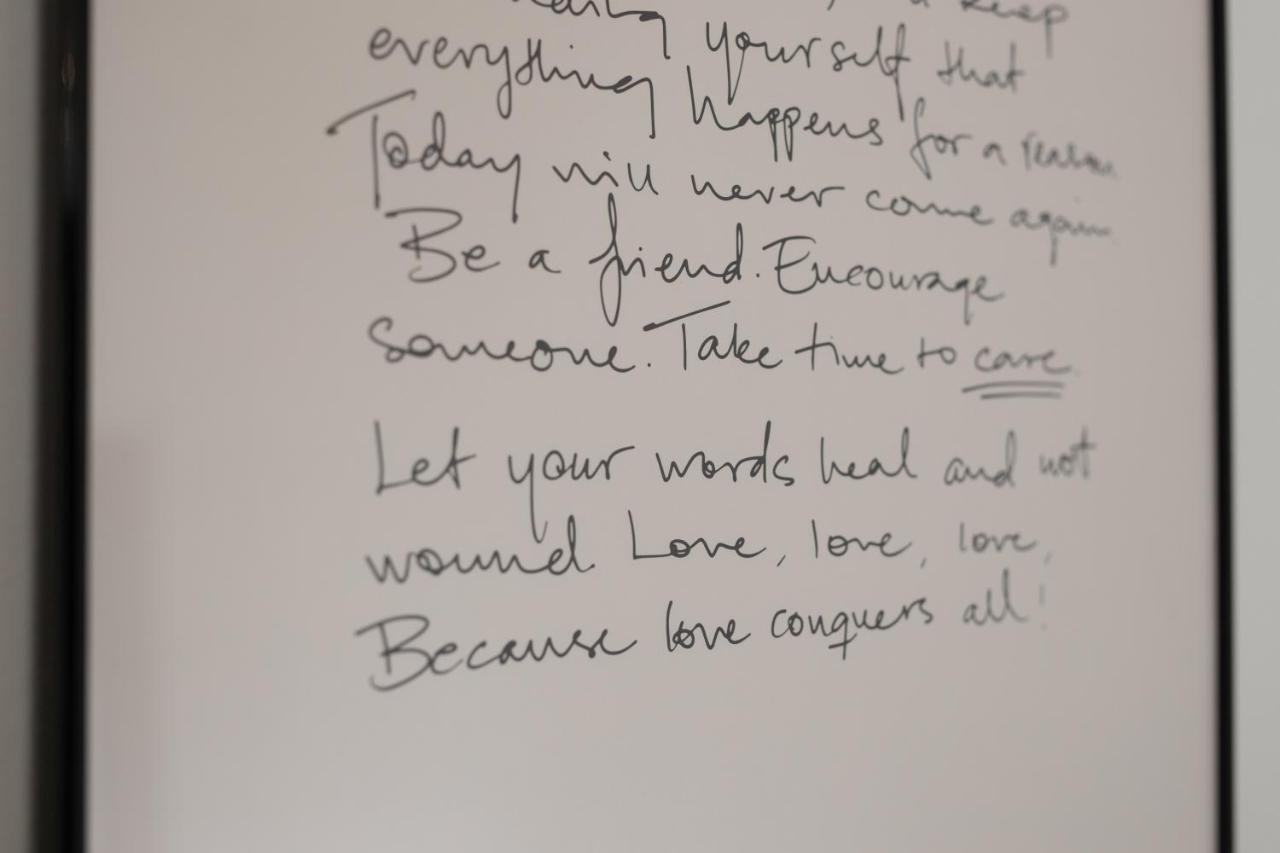 keep
yourself that
everything happens for a reason
Today will never come again
Be a friend. Encourage
someone. Take time to care.
Let your words heal and not
wound. Love, love, love,
Because love conquers all!